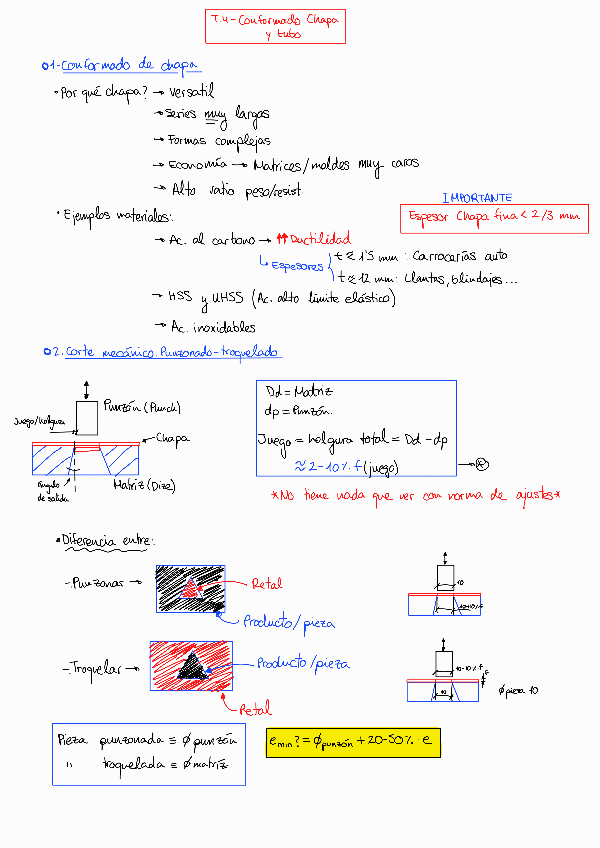 T.4-Conformado Chapa
y tubo
01-Conformado de chapa
• Por qué chapa? → Versatil
→ Series muy largas
→ Formas complejas
→ Economía → Matrices/moldes muy caros
→ Alto ratio peso/resist.
• Ejemplos materiales:
IMPORTANTE
Espesor Chapa fina < 2/3 mm
→ Ac. al carbono → ⇈ Ductilidad
↳ Espesores
t ≈ 1'5 mm: Carrocerías auto
t ≈ 12 mm: Llantas, blindajes...
→ HSS y UHSS (Ac. alto limite elástico)
→ Ac. inoxidables
02. Corte mecánico. Punzonado-troquelado
Punzón (Punch)
Juego/holgura
Chapa
ángulo
de salida
Matriz (Dize)
Dd = Matriz
dp = Punzón
Juego = holgura total = Dd - dp
≈ 2-10% f (juego)
*No tiene nada que ver con norma de ajustes*
• Diferencia entre:
- Punzonar →
Retal
Producto/pieza
10
10+10% f
- Troquelar →
Producto/pieza
Retal
10-10% f
f
10
φ pieza 10
Pieza punzonada ≡ φ punzón
" troquelada ≡ φ matriz
e min? = φ punzón + 20-50% · e